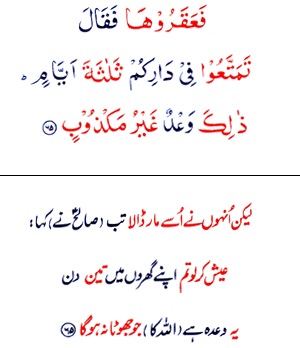 فَعَقَرُوْهَا فَقَالَ
تَمَتَّعُوْا فِیْ دَارِكُمْ ثَلٰثَةَ اَیَّامٍ ؕ
ذٰلِكَ وَعْدٌ غَیْرُ مَكْذُوْبٍ ﴿۶۵﴾
لیکن اُنہوں نے اُسے مار ڈالا تب (صالحؑ نے) کہا:
عیش کر لو تم اپنے گھروں میں تین دن
یہ وعدہ ہے (اللہ کا) جو جھوٹا نہ ہو گا ﴿۶۵﴾